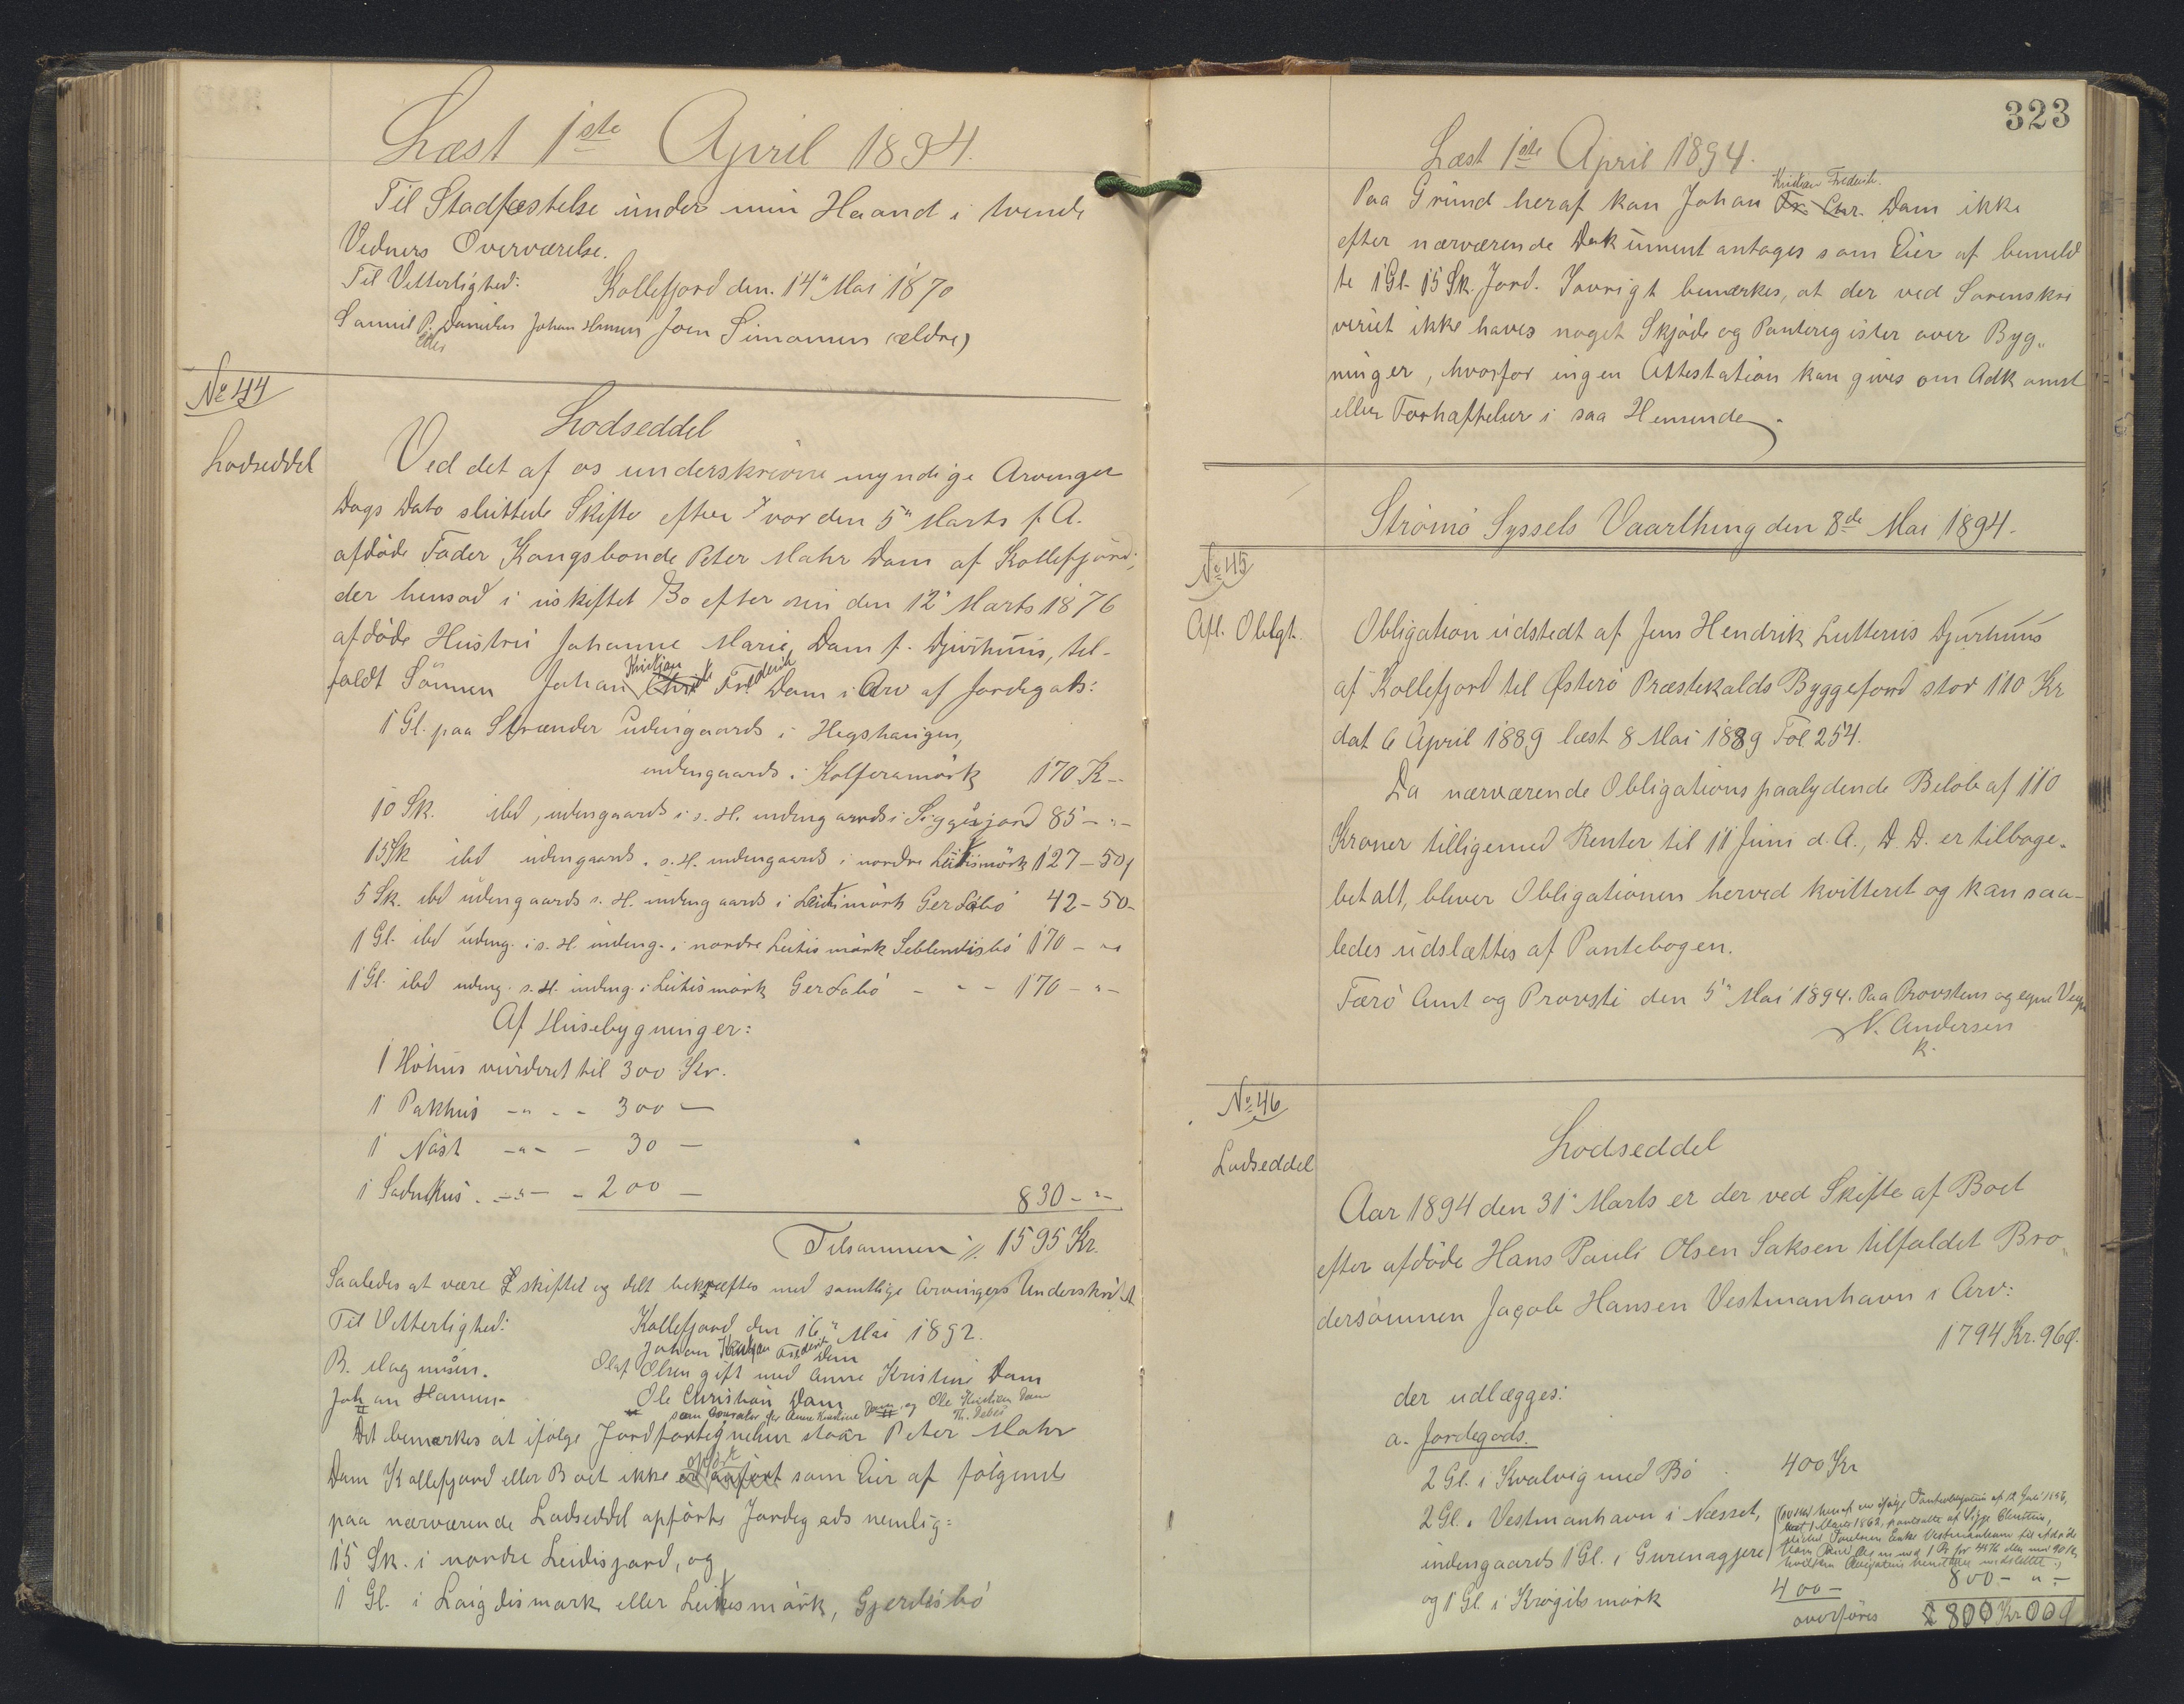 Læst 1ste April 1894.
Til Stadfæstelse under min Haand i tvende
Vidners Overværelse.
Til Vitterlighed: Kollefjord den. 14" Mai 1870
Samuel P. Danielsen Johan Hansen Joen Simonsen (ældre)
No 44
Lodseddel
Lodseddel
Ved det af os underskrevne myndige Arvinger
Dags Dato sluttede Skifte efter vor den 5" Marts f. A.
afdöde Fader Kongsbonde Peter Mohr Dam af Kollefjord;
der hensad i uskiftet Bo efter sin den 12" Marts 1876
afdöde Hustru Johanne Marie Dam f. Djurhuus, til-
faldt Sönnen Johan Kristian Frederik Dam i Arv af Jordegods:
1 Gl. paa Strænder udengaards i Hegshaugen,
indengaards i Kolferamörk 170 K -
10 Sk. ibd, udengaards i s. H. indengaards i Siggisjord 85 - " -
15 Sk ibd udengaards. s. H. indengaards i nordre Leitismörk 127 - 50,
5 Sk. ibd udengaards s. H. indengaards i Leitismörk Gerdabö 42 - 50 -
1 Gl. ibd udeng. i s. H. indeng. i nordre Leitismörk 170 - "
1 Gl. ibd udeng. s. H. indeng. i Leitismörk Gerdabö - - - 170 - " -
Af Husebygninger:
1 Höhus vurderet til 300 Kr.
1 Pakhus - " - - 300 -
1 Nöst - " - - 30 -
1 - " - - 200 - 830 - " -
Tilsammen 1595 Kr.
Saaledes at være skiftet og delt bekræftes med samtlige Arvingers Underskrift
Til Vitterlighed: Kollefjord den 16" Mai 1892.
Johan Kristian Frederik Dam
R. Magnusen. Olaf Olsen gift med Anne Kristine Dam
Johan Hansen Ole Christian Dam
som Curator for Anne Kristine Dam og Ole Kristian Dam
Th. Debes
Det bemærkes at ifølge Jordfortegnelsen staar Peter Mohr
Dam Kollefjord eller Boet ikke opført som Eier af følgende
paa nærværende Lodseddel opförte Jordegods nemlig:
15 Sk. i nordre Leidisjord, og
1 Gl. i Laigdismark eller Leitesmörk, Gjerdisbö
323
Læst 1ste April 1894.
Kristian Frederik.
Paa Grund heraf kan Johan Fr. Chr. Dam ikke
efter nærværende Dokument antages som Eier af bemeld
te 1 Gl. 15 Sk. Jord. Iövrigt bemærkes, at der ved Sorenskri
veriet ikke haves noget Skjöde og Panteregister over Byg„
ninger, hvorfor ingen Attestation kan gives om Adkomst
eller Forhæftelser i saa Henseende.
Strömö Syssels Vaarthing den 8de Mai 1894.
No 45
Afl. Oblgt.
Obligation udstedt af Jens Hendrik Lutterus Djurhuus
af Kollefjord til Østerö Præstekalds Byggefond stor 110 Kr
dat 6 April 1889 læst 8 Mai 1889 Fol. 254.
Da nærværende Obligations paalydende Beløb af 110
Kroner tilligemed Renter til 11 Juni d. A., D. D. er tilbage„
betalt, bliver Obligationen herved kvitteret og kan saa-
ledes udslettes af Pantebogen.
Færö Amt og Provsti den 5" Mai 1894. Paa Provstens og egne Vegne
N. Andersen
k.
No 46
Lodseddel
Lodseddel
Aar 1894 den 31" Marts er der ved Skifte af Boet
efter afdöde Hans Pauli Olsen Saksen tilfaldet Bro„
dersönnen Jacob Hansen Vestmanhavn i Arv:
1794 Kr. 96 Ø.
der udlægges:
a. Jordegods.
2 Gl. i Kvalvig med Bö 400 Kr
2 Gl. i Vestmanhavn i Næsset,
indengaards 1 Gl. i Gurenagjere
og 1 Gl. i Krögils mörk 400 - 800 - " -
overføres 800 Kr 00 Ø